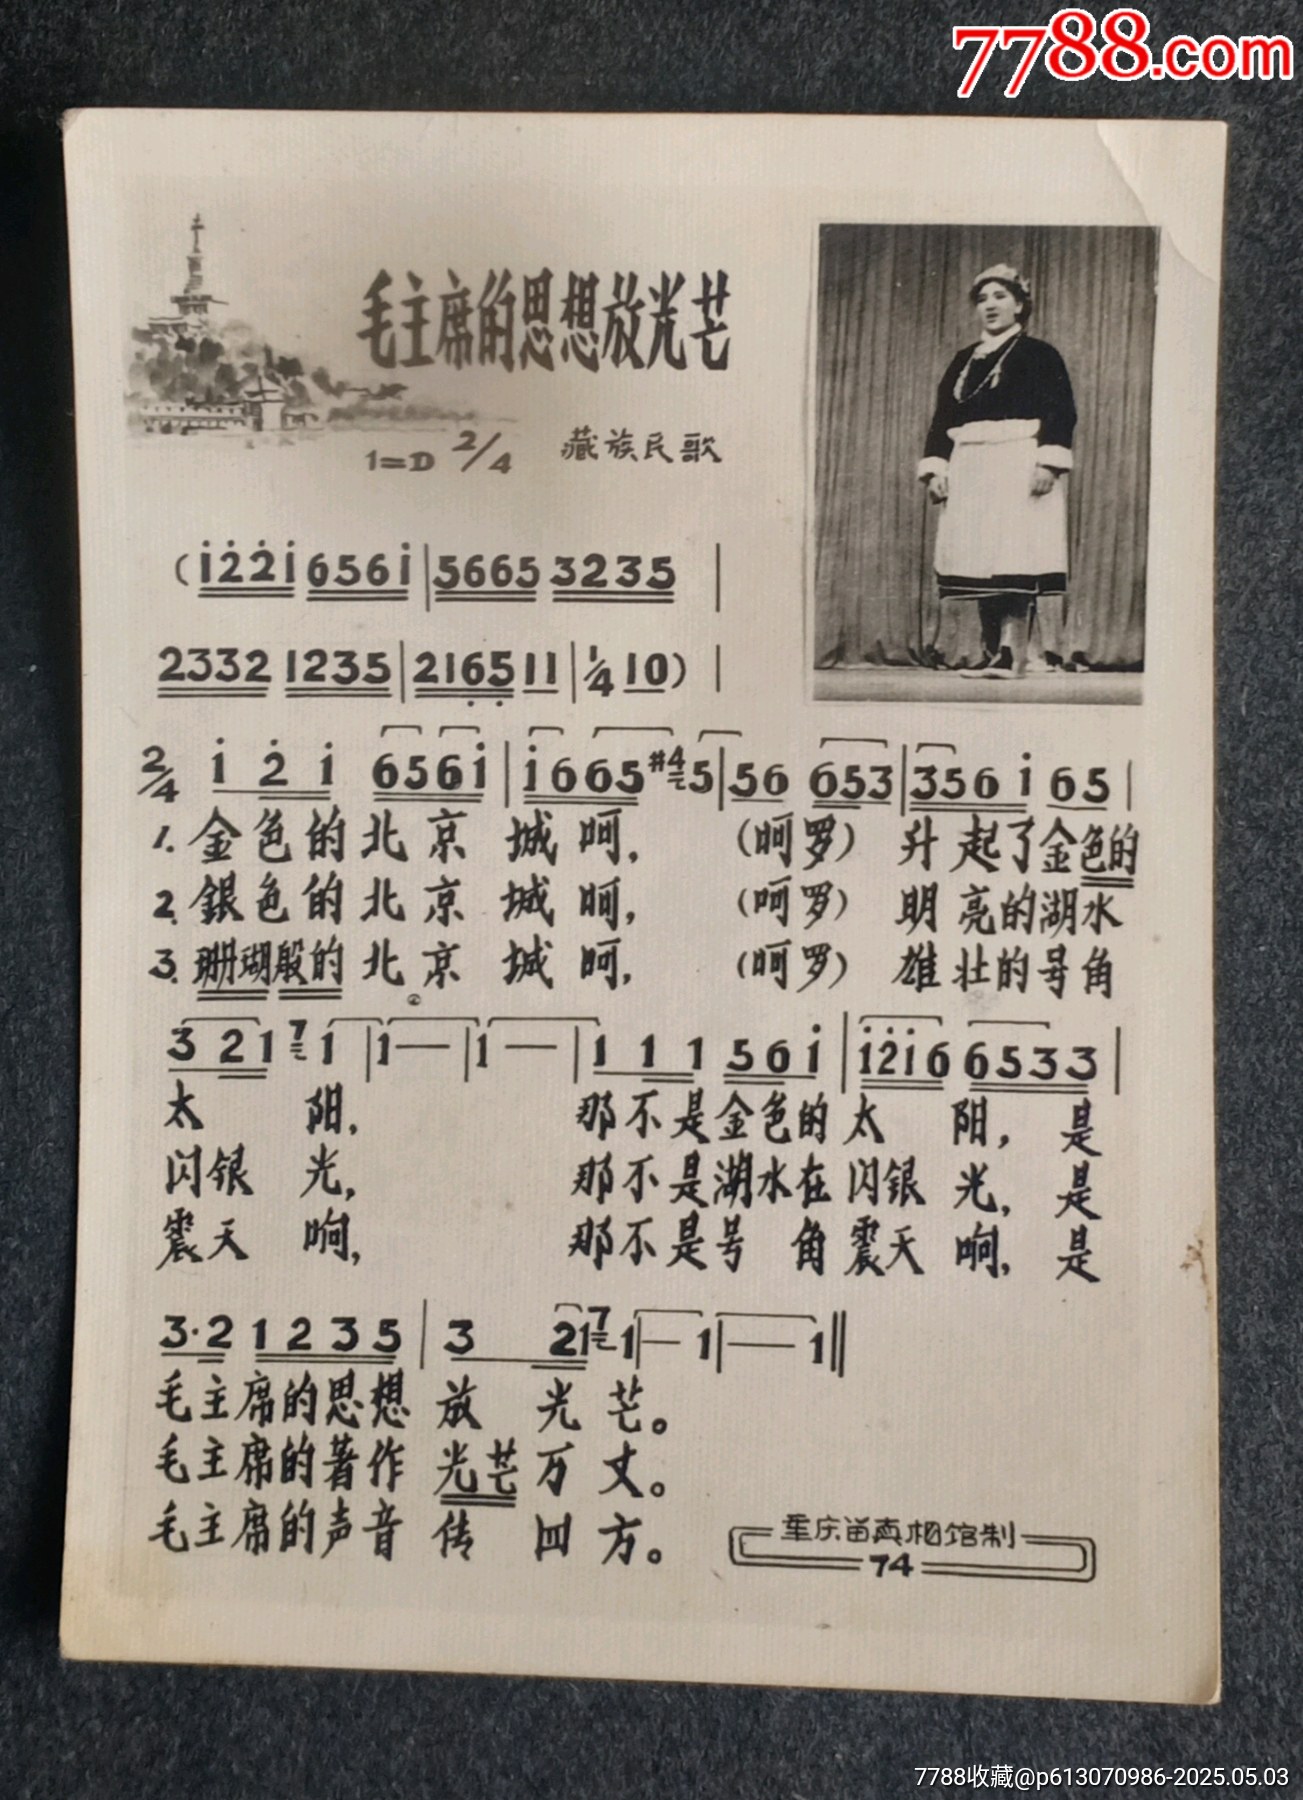 7788.com
毛主席的思想放光芒
1=D 2/4 藏族民歌
(i̇2̇2̇i̇ 656i̇ | 5665 3235 |
2332 1235 | 216̣5̣ 11 | 1/4 10) |
2/4 i̇ 2̇ i̇ 656i̇ | i̇665 #45 | 56 653 | 356i̇ 65 |
1. 金色的北京城呵, (呵罗) 升起了金色的
2. 銀色的北京城呵, (呵罗) 明亮的湖水
3. 珊瑚般的北京城呵, (呵罗) 雄壮的号角
3 21 7 1 | 1— | 1— | 1 1 1 56i̇ | i̇2̇i̇6 6533 |
太阳, 那不是金色的太阳, 是
闪银光, 那不是湖水在闪银光, 是
震天响, 那不是号角震天响, 是
3·2 1235 | 3 21 7 1 | — 1 | — 1 ‖
毛主席的思想放光芒。
毛主席的著作光芒万丈。
毛主席的声音传四方。
重庆留真相馆制
74
7788收藏@p613070986-2025.05.03